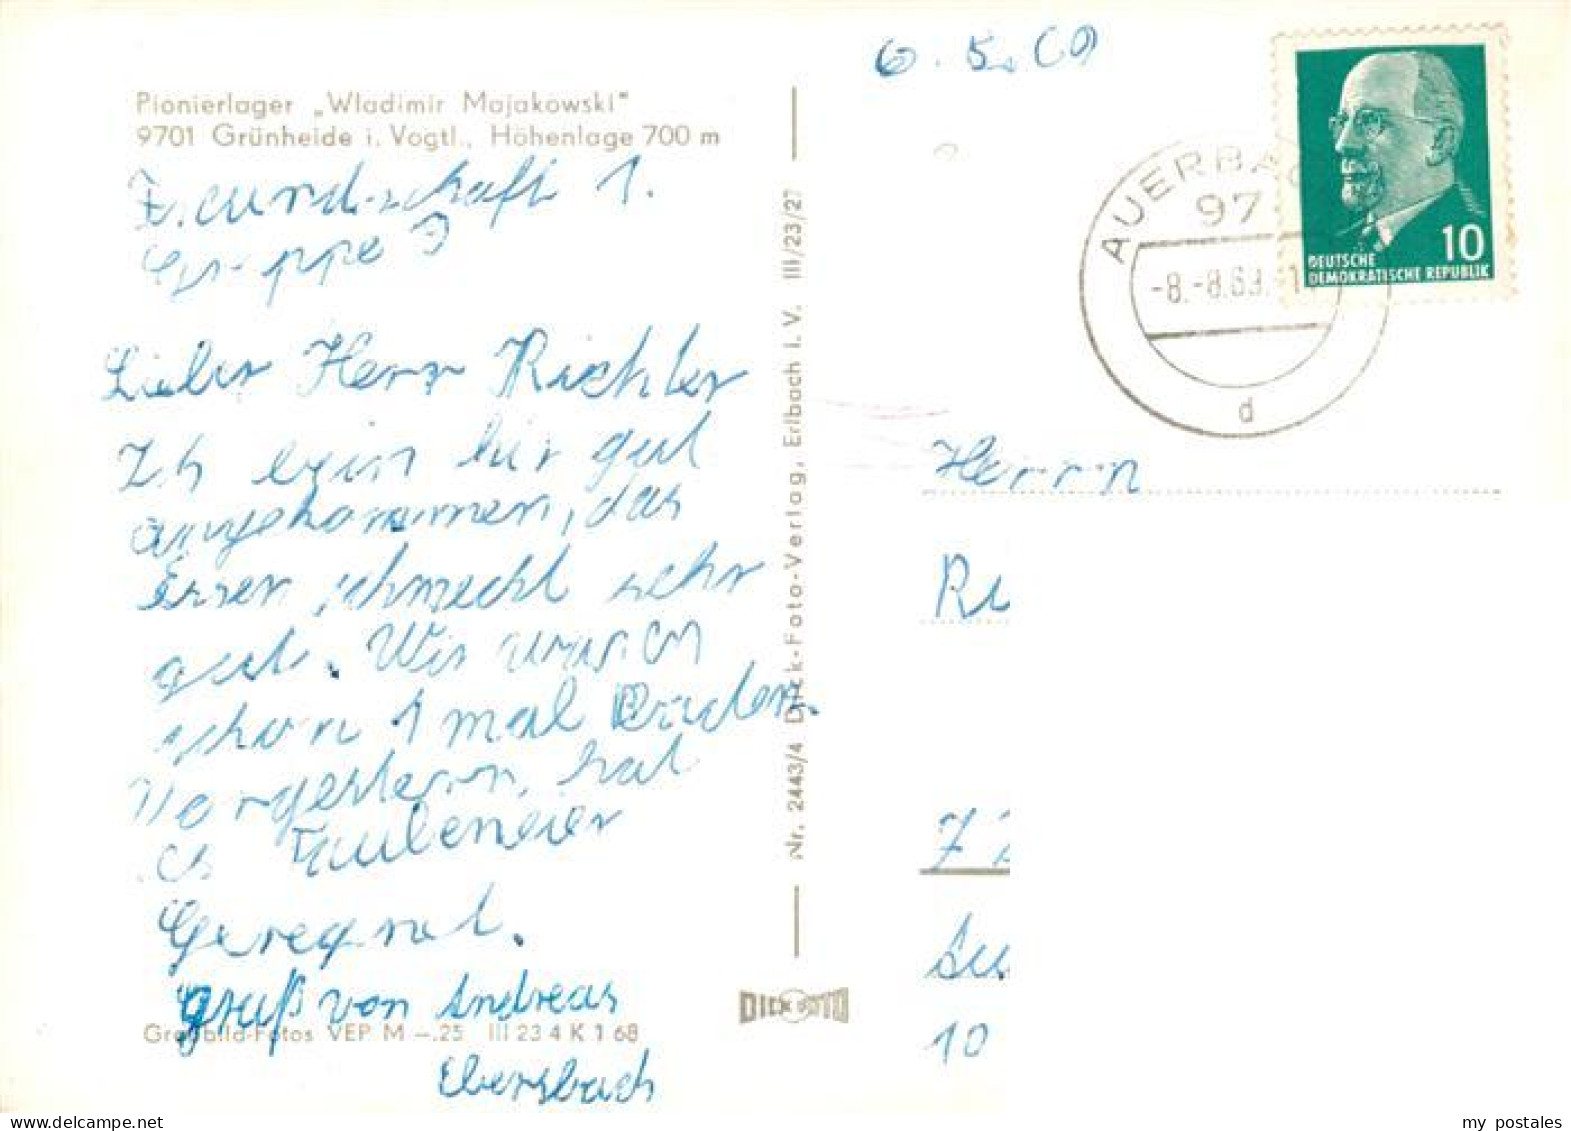 Pionierlager „Wladimir Majakowski"
9701 Grünheide i. Vogtl., Höhenlage 700 m
Freundschaft 1.
Gruppe 3
Lieber Herr Richter
Ich bin hir gut
angekommen, das
Essen schmeckt sehr
gut. Wir waren
schon 1 mal Baden.
Vorgestern, hat
es
Geregnet.
Gruß von Andreas
Ebersbach
Großbild-Fotos VEP M -.25 III 23 4 K 1 68
Nr. 2443/4 Dick-Foto-Verlag, Erlbach i. V. III/23/27
DICK FOTO
6. 5. 69
AUERBAC
97
-8.-8.69.-1
d
10
DEUTSCHE
DEMOKRATISCHE REPUBLIK
Herrn
Ri
Au
10
my postales